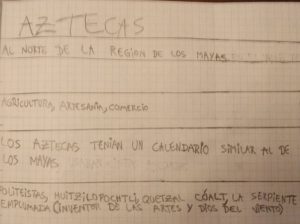 AZTECAS
AL NORTE DE LA REGION DE LOS MAYAS
AGRICULTURA, ARTESANÍA, COMERCIO
LOS AZTECAS TENIAN UN CALENDARIO SIMILAR AL DE
LOS MAYAS
POLITEISTAS, HUITZILOPOCHTLI, QUETZAL CÓALT, LA SERPIENTE
EMPLUMADA (INVENTOR DE LAS ARTES Y DIOS DEL VIENTO)